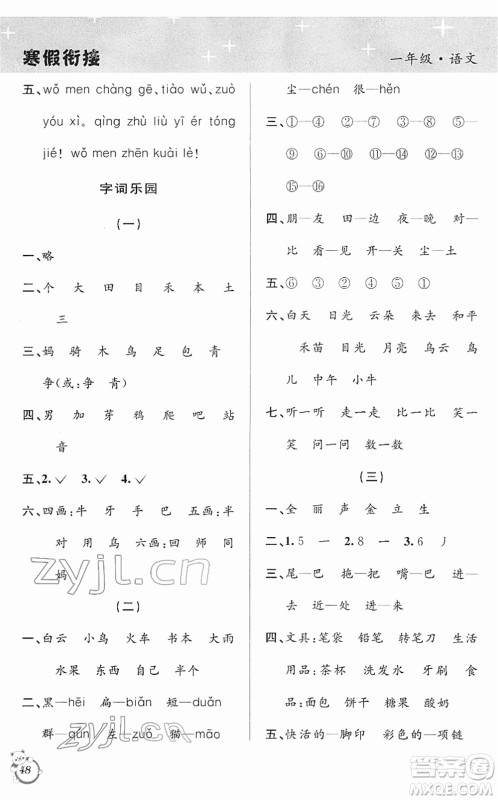 寒假衔接
一年级·语文
五、wǒ men chàng gē,tiào wǔ,zuò
yóu xì。qìng zhù liù yī ér tóng
jié! wǒ men zhēn kuài lè!
字词乐园
(一)
一、略
二、个 大 田 目 禾 本 土
三
三、妈 骑 木 鸟 足 包 青
争(或:争 青)
四、男 加 芽 鸦 爬 吧 站
音
五、2.✓ 3.✓ 4.✓
六、四画:牛 手 巴 五画:半
对 用 鸟 六画:回 师 同
妈
(二)
一、白云 小鸟 火车 本来 大雨
水果 东西 自己
二、黑—hēi 扁—biǎn 短—duǎn
群—qún 左—zuǒ 猫—māo
尘—chén 很—hěn
三、①—④ ②—③ ⑤—⑥ ⑦—⑧
⑨—⑩ ⑪—⑫ ⑬—⑭
⑮—⑯
四、朋—友 田—地 夜—晚 对—
比 看—见 开—关 尘—土
五、⑥ ③ ② ④ ⑤ ①
六、白天 日光 云朵 来去 和平
禾苗 目光 月亮 乌云 鸟
儿 中午 小牛
七、听一听 走一走 比一比 笑一
笑 问一问 数一数
(三)
一、全 丽 声 金 立 生
二、1.5 一 2.8 一 3.6 丿
三、尾—巴 拖—把 嘴—巴 进—
去 还—是
四、文具:笔袋 铅笔 转笔刀 生活
用品:茶杯 洗发水 牙刷 食
品:面包 饼干 糖果 酸奶
五、快活的—脚印 彩色的—铜钱
48
zyjl.cn
zyjl.cn
答案圈
MXQE.COM